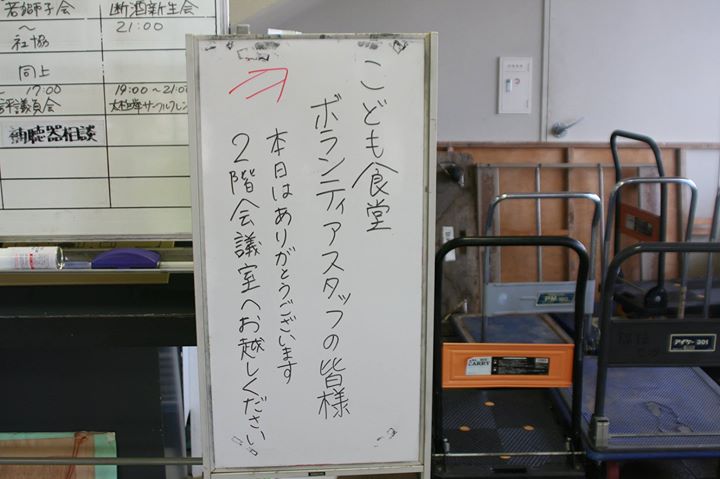 こども食堂
ボランティアスタッフの皆様
本日はありがとうございます
2階会議室へお越しください。
若獅子会
断酒新生会
～
21:00
社協
同上
～17:00
19:00～21:
評議員会
補聴器相談
CARRY
アイケー301